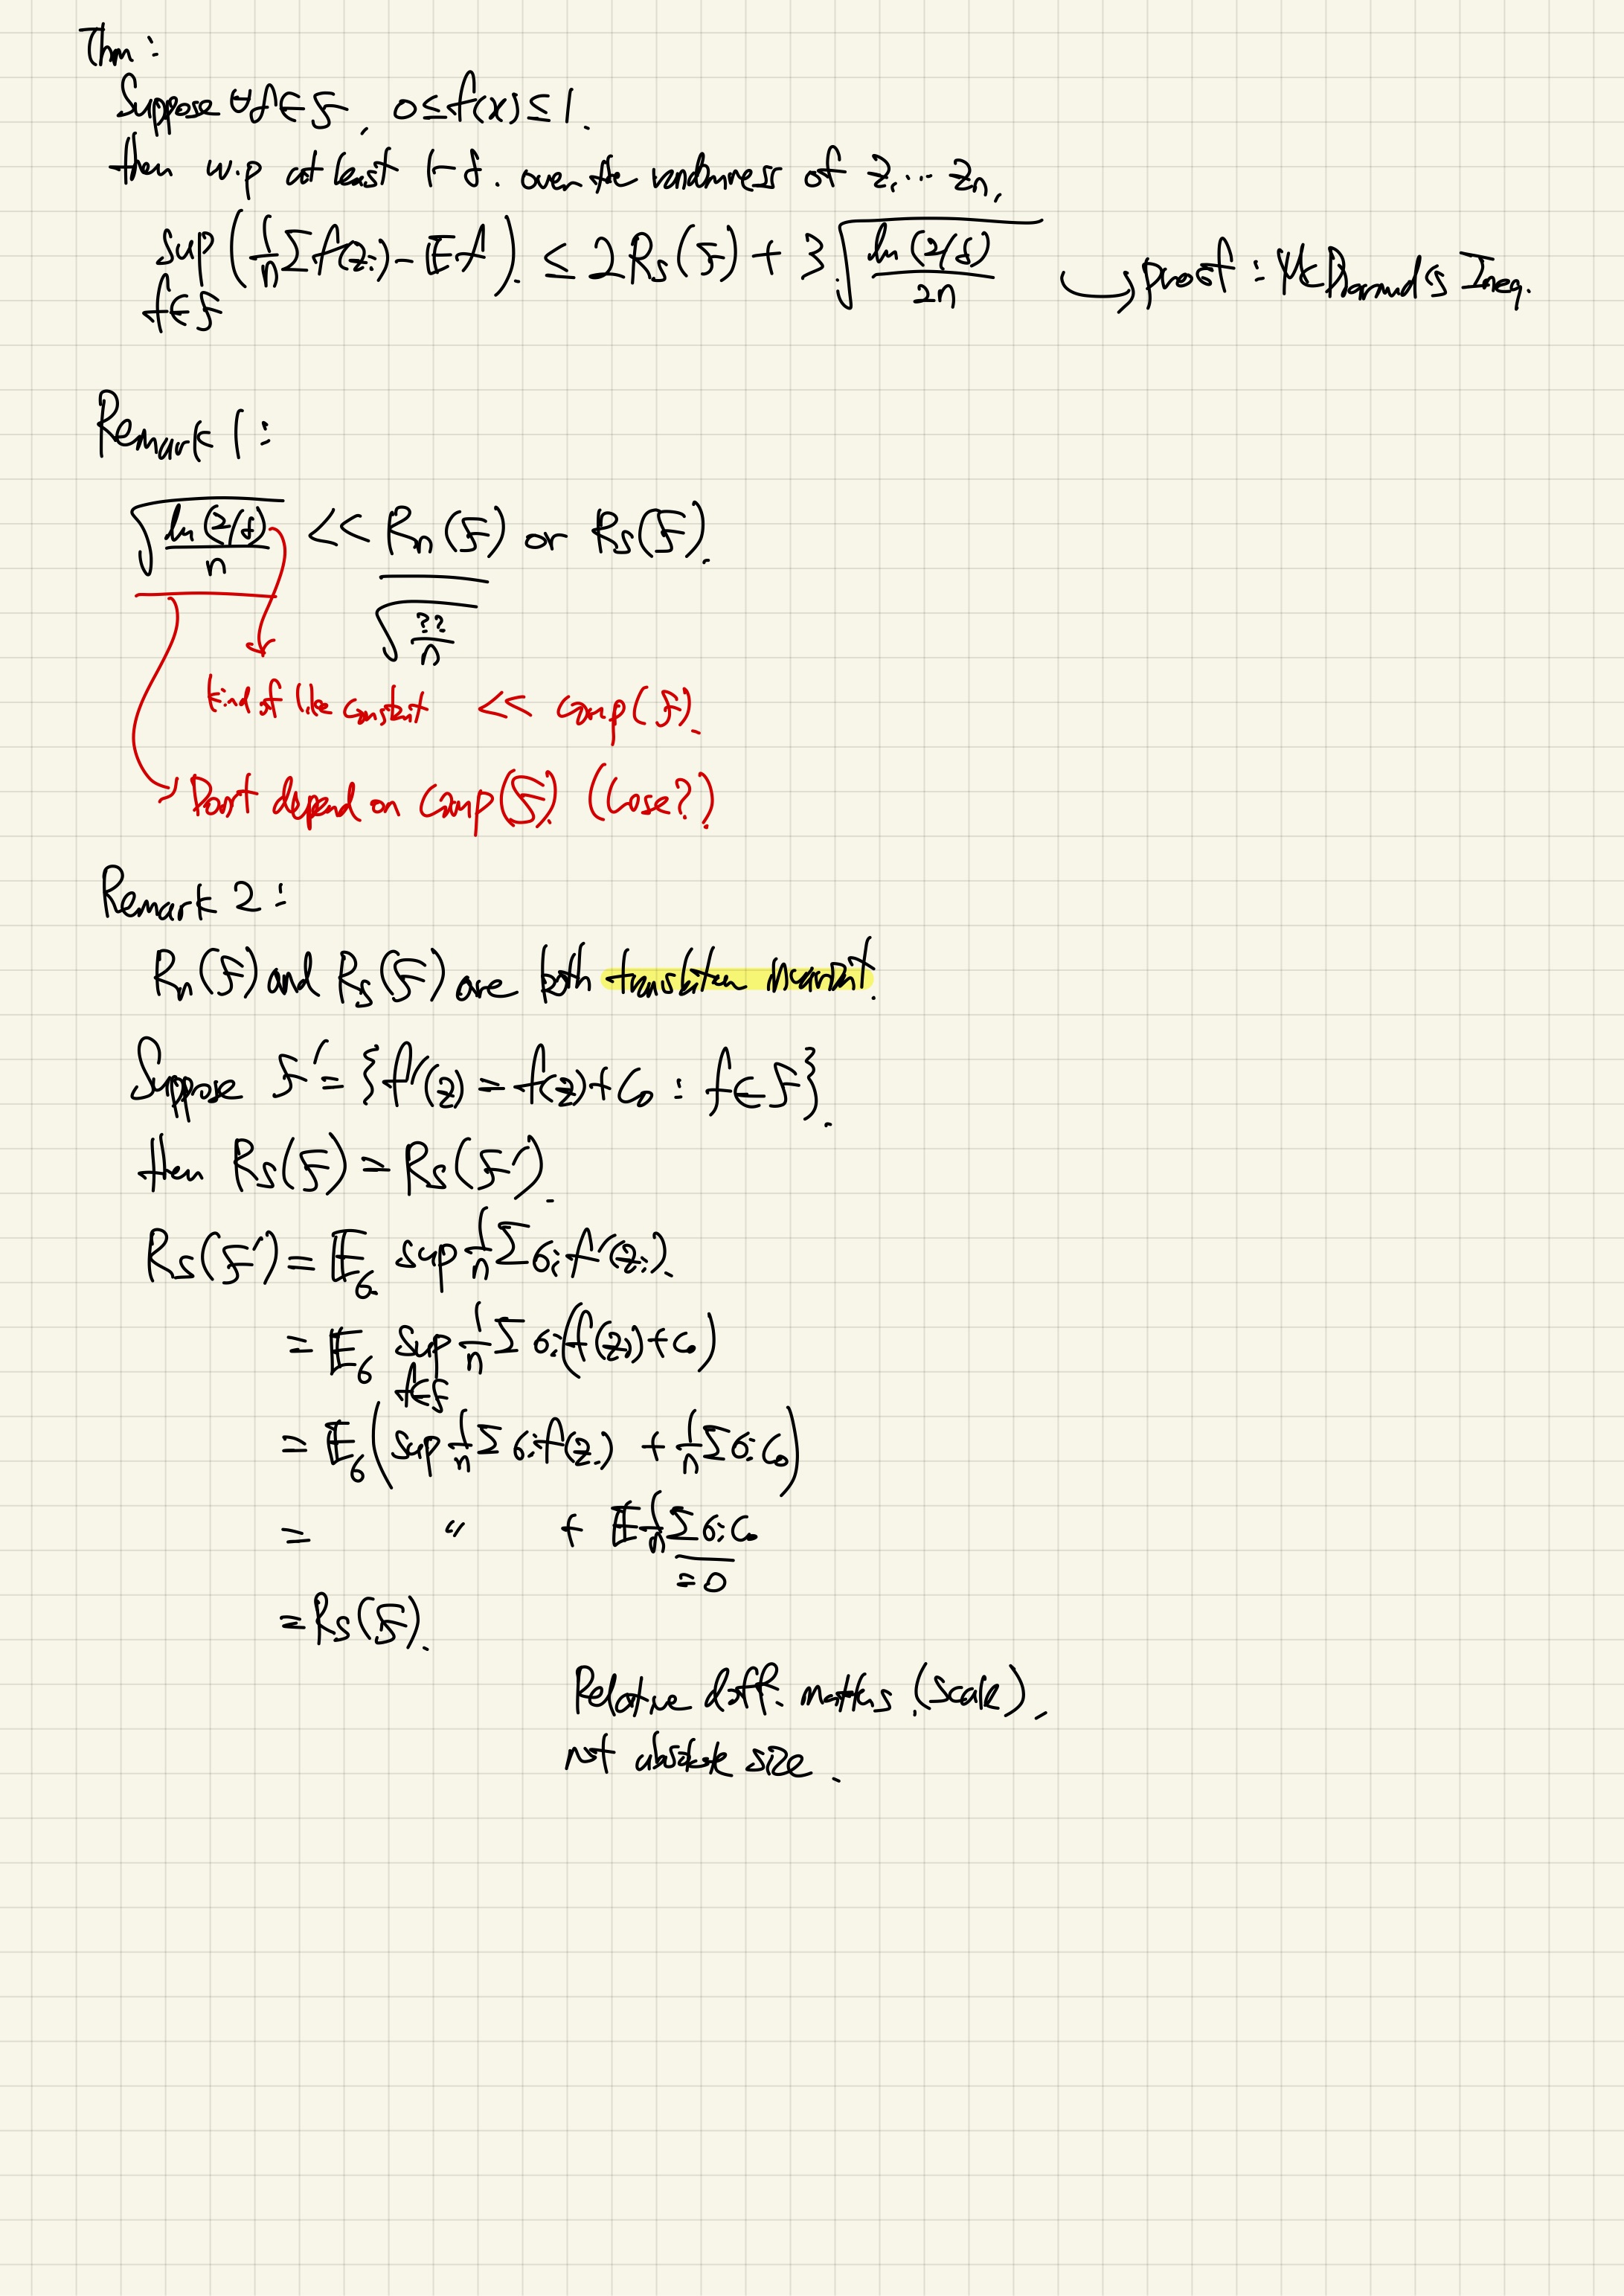 Thm :
Suppose ∀f ∈ F, 0 ≤ f(x) ≤ 1.
then w.p at least 1-δ. over the randomness of z₁ ... zₙ,
sup_{f∈F} (1/n Σ f(zᵢ) - 𝔼f). ≤ 2 R_S(F) + 3 √(ln(2/δ) / 2n) proof : McDiarmid's Ineq.
Remark 1 :
√(ln(2/δ) / n) << Rₙ(F) or R_S(F).
√(?? / n)
kind of like constant << Comp(F).
Don't depend on Comp(F). (Loose?)
Remark 2 :
Rₙ(F) and R_S(F) are both translation invariant.
Suppose F' = {f'(z) = f(z) + C₀ : f ∈ F}.
then R_S(F) = R_S(F').
R_S(F') = 𝔼_σ sup 1/n Σ σᵢ f'(zᵢ).
= 𝔼_σ sup_{f∈F} 1/n Σ σᵢ (f(zᵢ) + C₀)
= 𝔼_σ (sup 1/n Σ σᵢ f(zᵢ) + 1/n Σ σᵢ C₀)
= " + 𝔼 1/n Σ σᵢ C₀
= 0
= R_S(F).
Relative diff. matters (scale).
not absolute size.